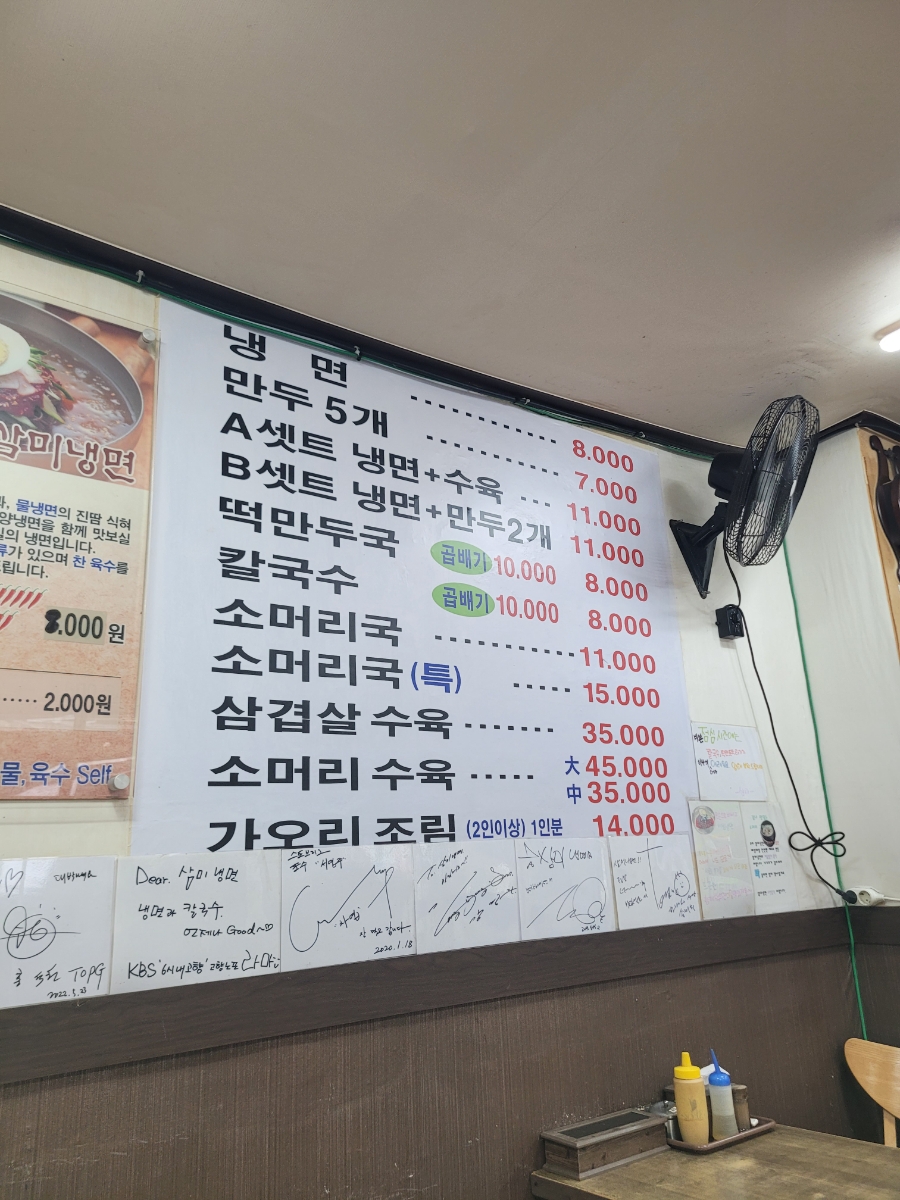 냉 면 ---------- 8.000
만두 5개 ---------- 7.000
A셋트 냉면+수육 ---- 11.000
B셋트 냉면+만두2개 11.000
떡만두국 곱배기 10.000 8.000
칼국수 곱배기 10.000 8.000
소머리국 ---------- 11.000
소머리국(특) ----- 15.000
삼겹살 수육 ------- 35.000
소머리 수육 ····· 大 45.000
中 35.000
가오리 조림 (2인이상) 1인분 14.000
삼미냉면
물냉면의 진땀 식혀
양냉면을 함께 맛보실
의 냉면입니다.
가 있으며 찬 육수를
드립니다.
8.000원
····· 2.000원
물,육수 Self
대박나세요
TOPG
2022.5.23
Dear. 삼미 냉면
냉면과 칼국수
언제나 Good~♡
KBS '6시내고향' 고향노포
2020.1.18